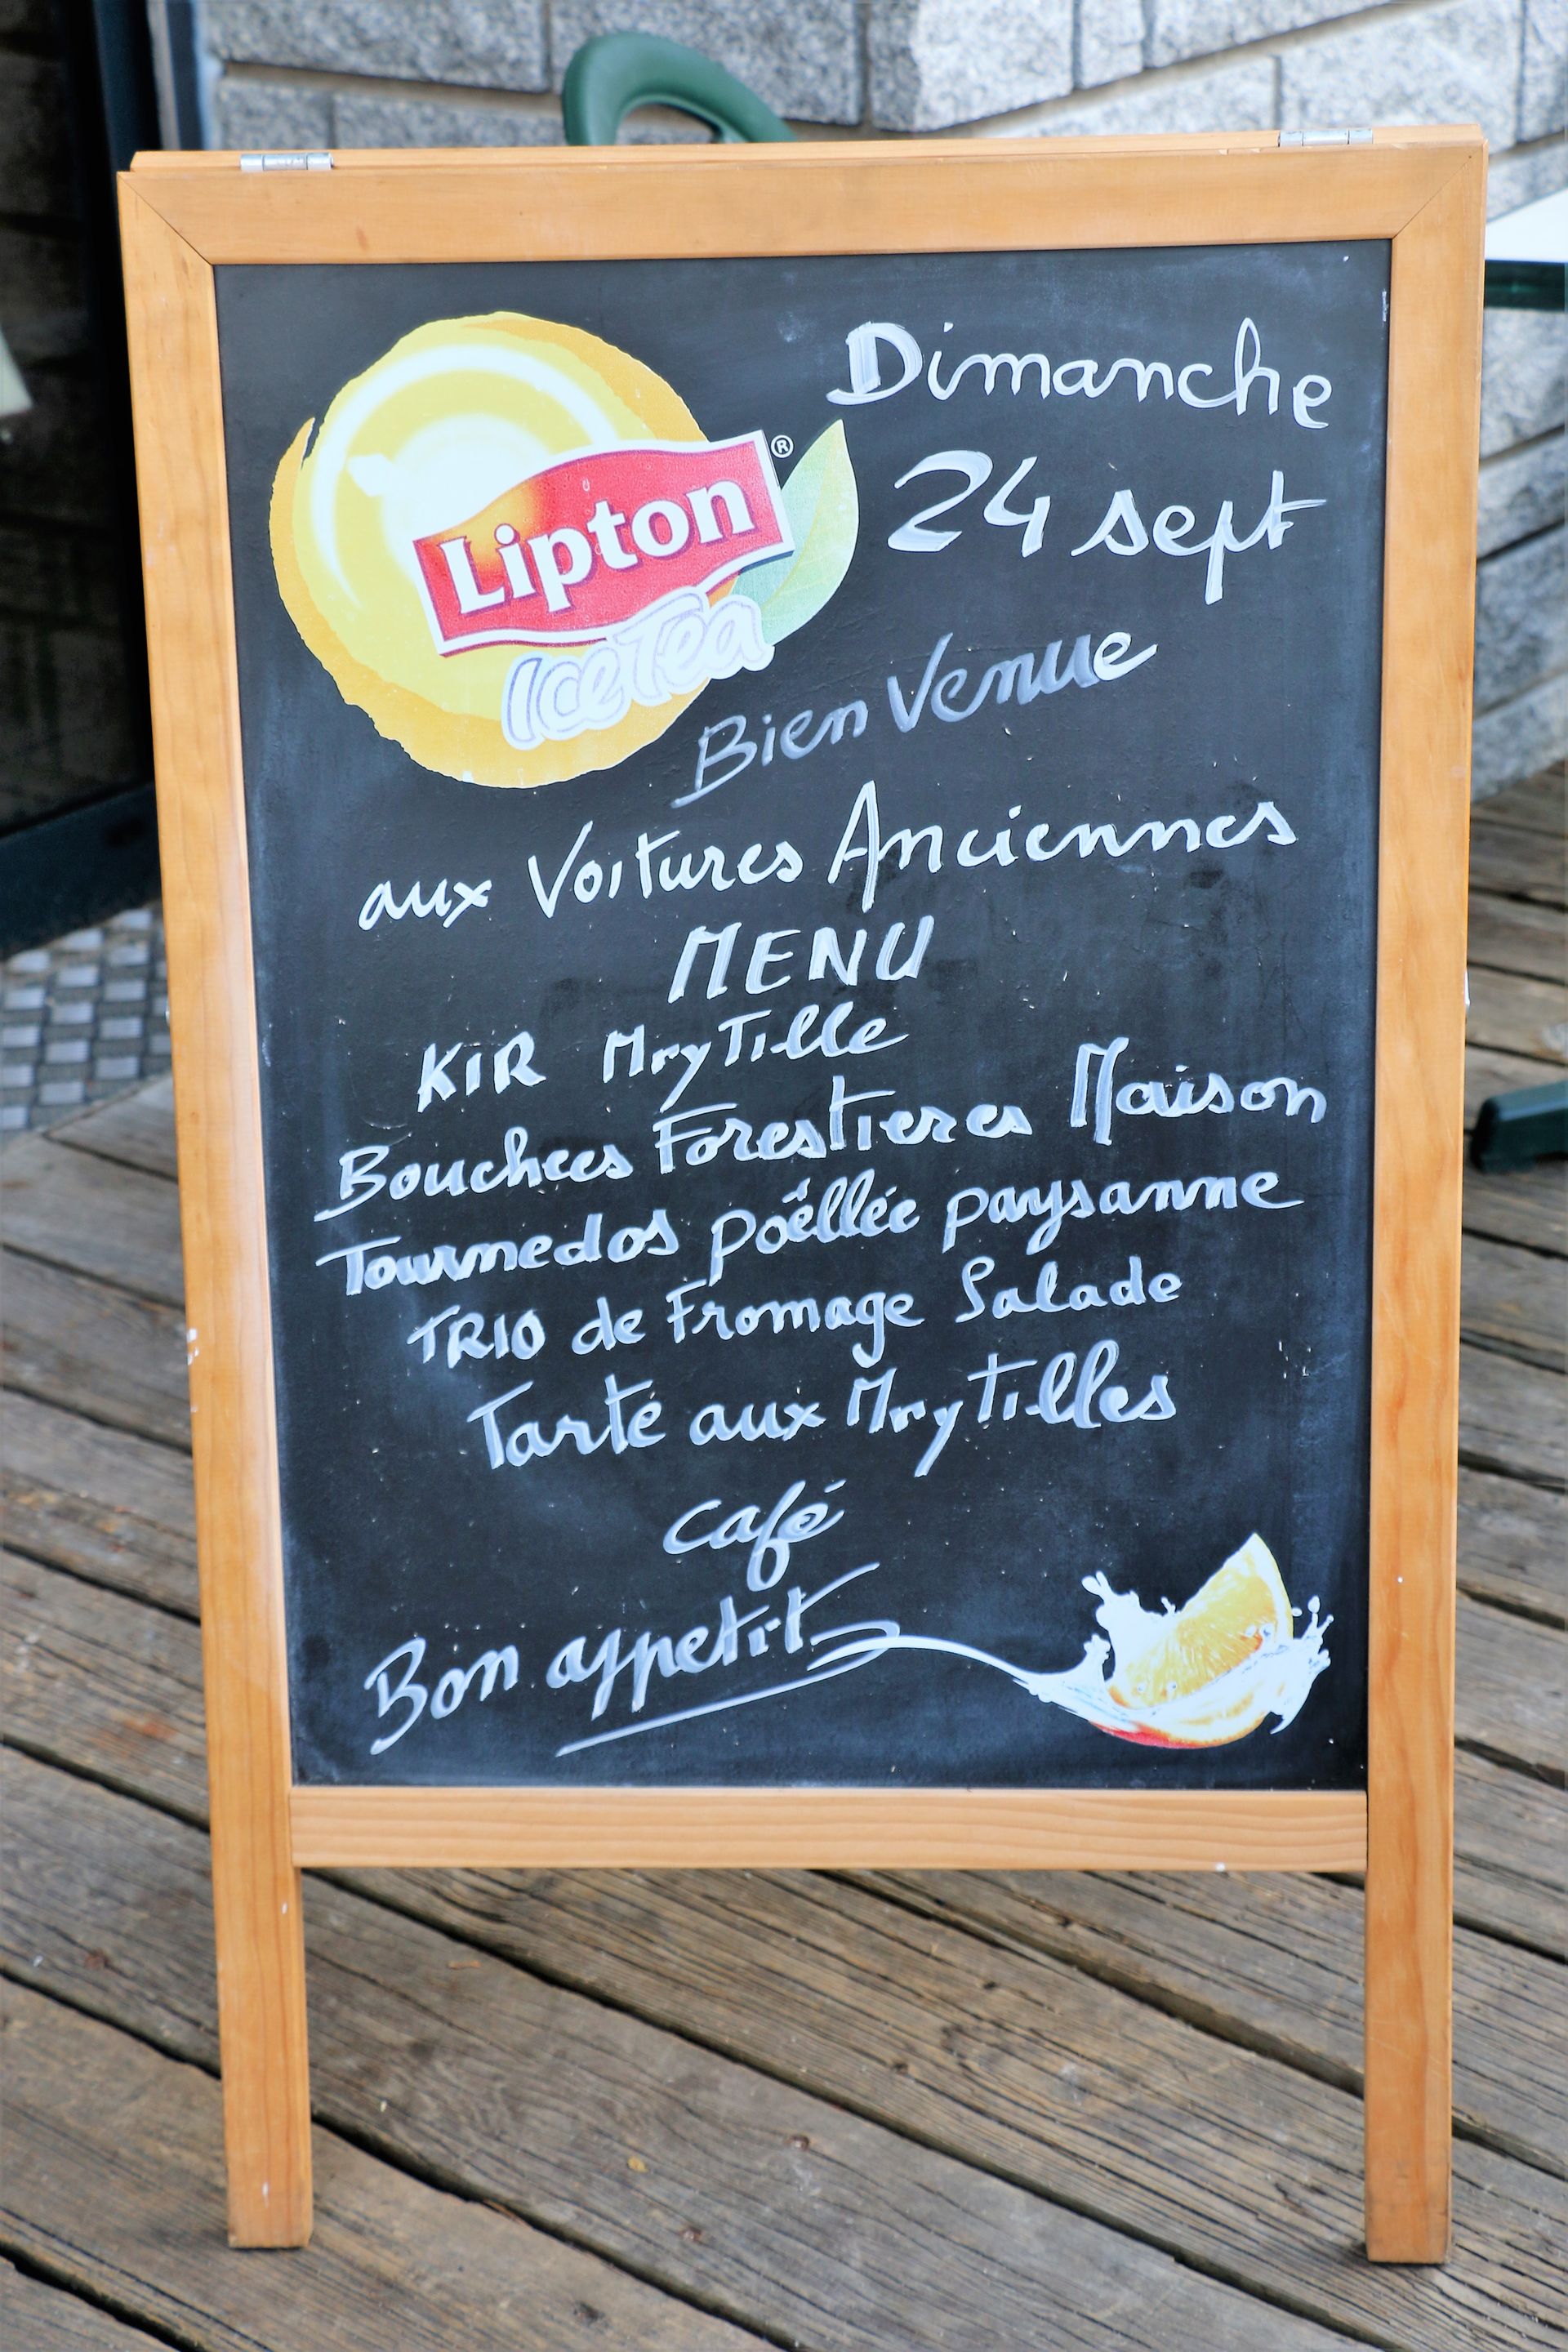 Dimanche
24 sept
Lipton®
Ice Tea
BienVenue
aux Voitures Anciennes
MENU
KIR MryTille
Bouchees Forestieres Maison
Tournedos poêllée paysanne
TRIO de Fromage Salade
Tarte aux MryTilles
café
Bon appetit